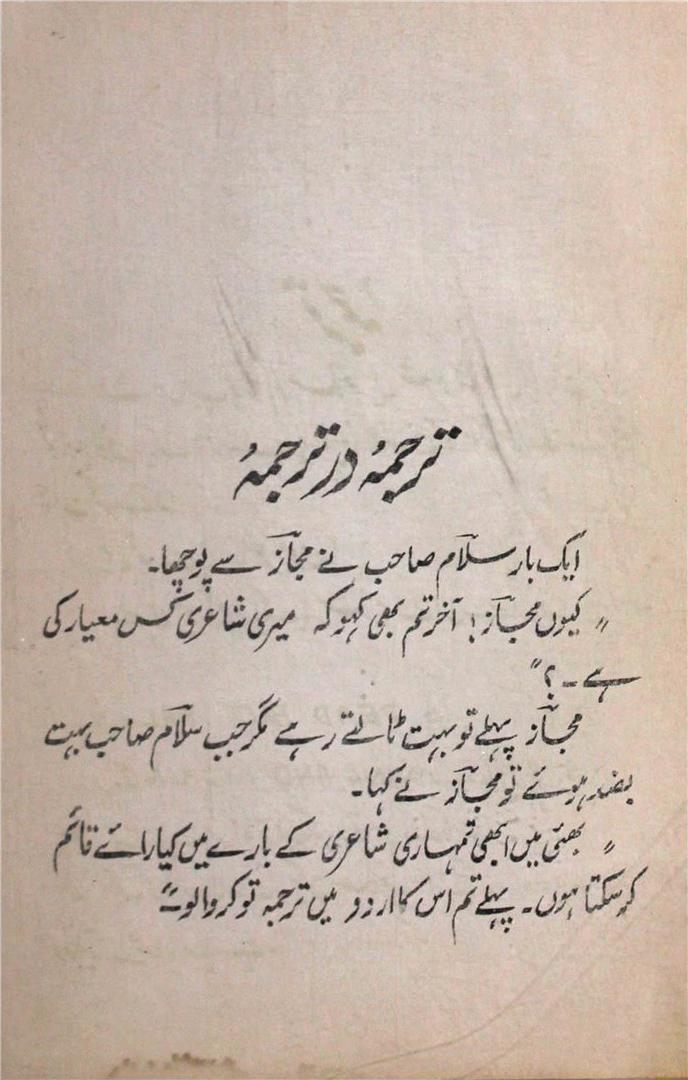 ترجمہ در ترجمہ
ایک بار سلام صاحب نے مجاز سے پوچھا۔
"کیوں مجاز! آخر تم بھی کہو کہ میری شاعری کس معیار کی
ہے۔؟"
مجاز پہلے تو بہت ٹالتے رہے مگر جب سلام صاحب بہت
بضد ہوئے تو مجاز نے کہا۔
"بھئی میں ابھی تمہاری شاعری کے بارے میں کیا رائے قائم
کر سکتا ہوں۔ پہلے تم اس کا اردو میں ترجمہ تو کروالو۔"